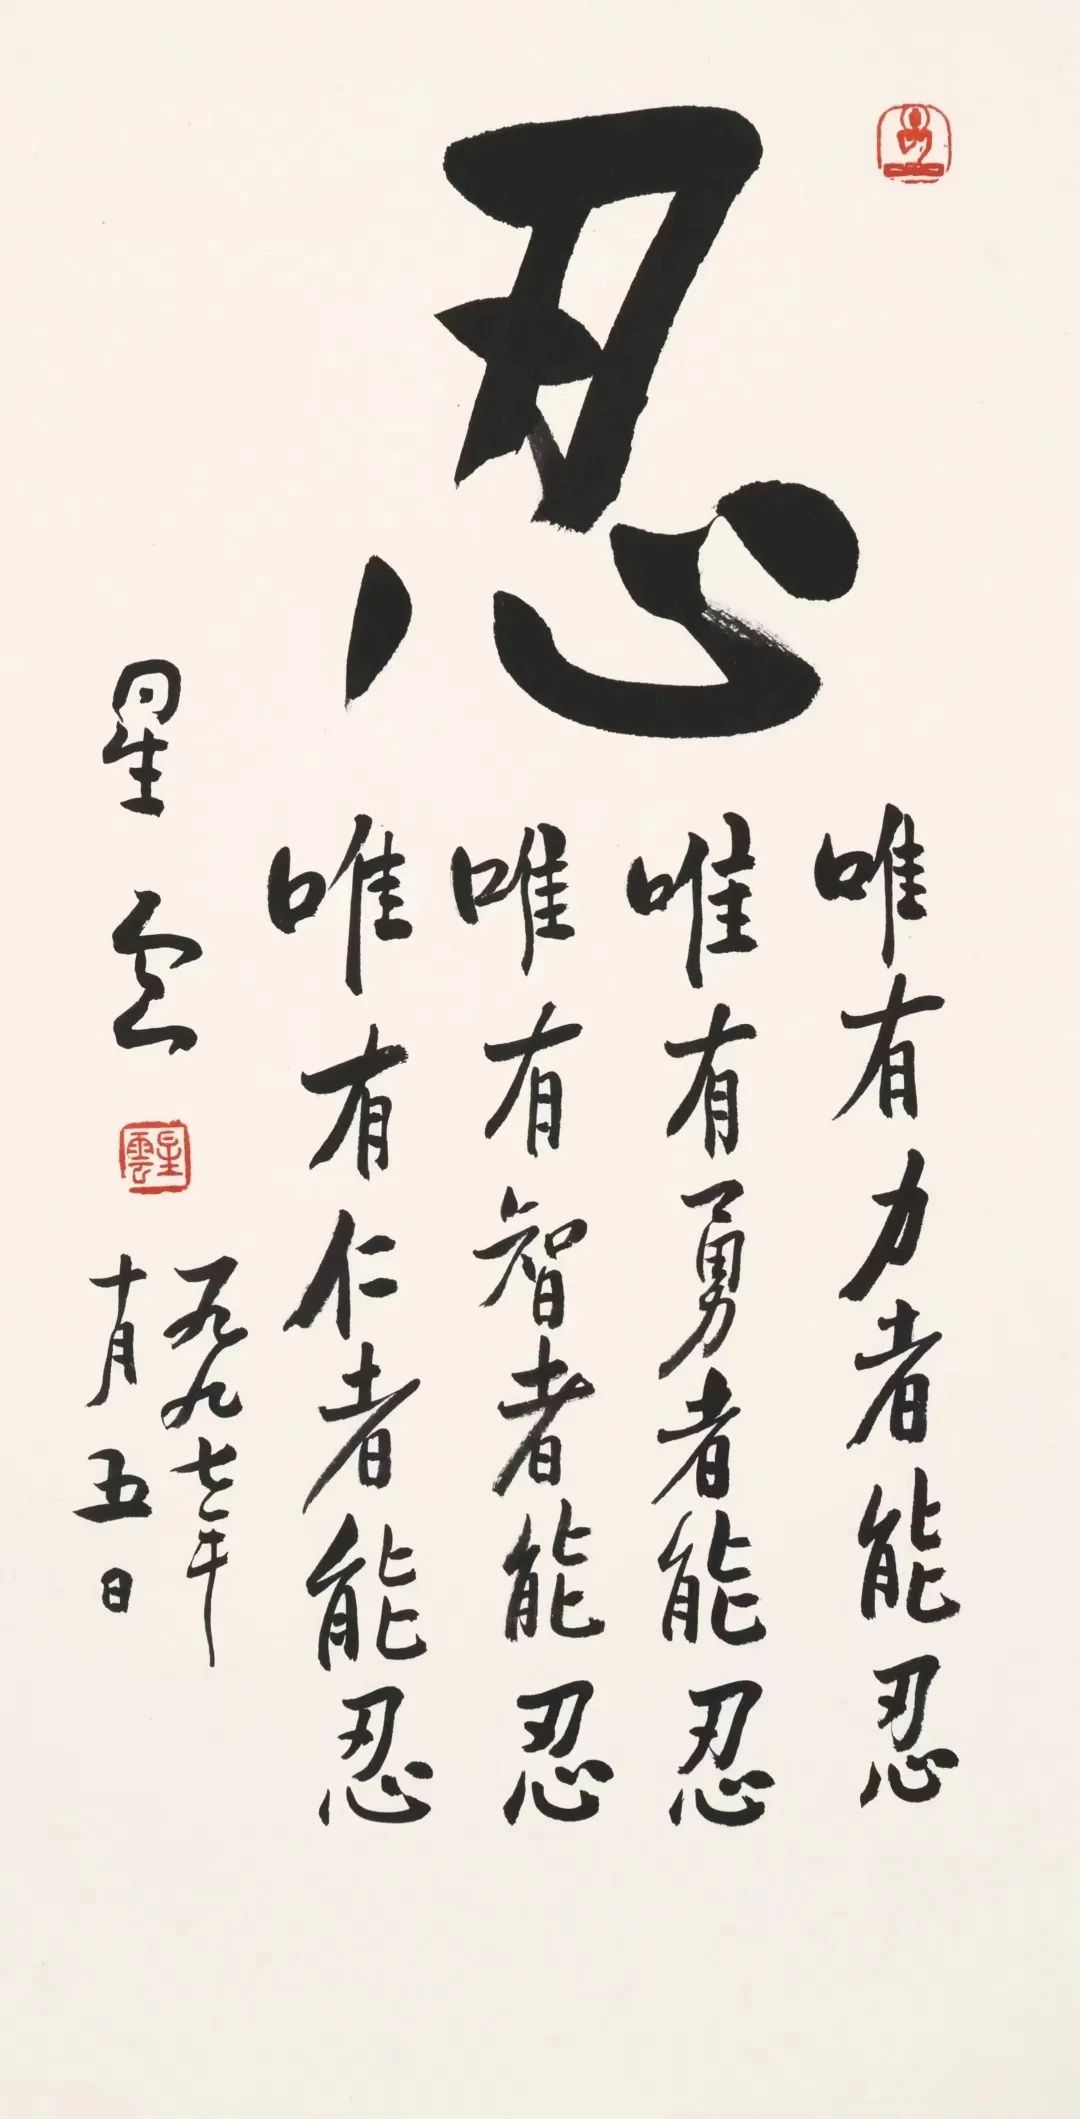 忍
唯有力者能忍
唯有勇者能忍
唯有智者能忍
唯有仁者能忍
星云
星雲
一九九七年
十月五日